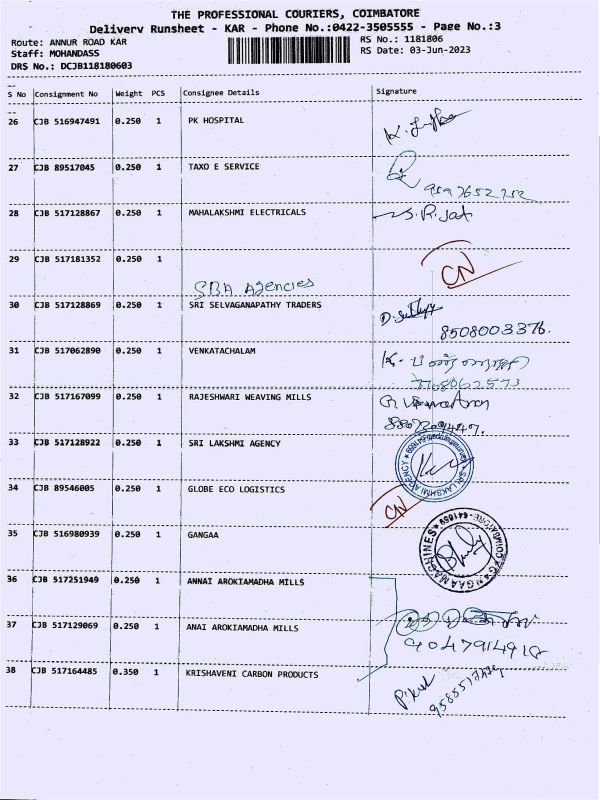 THE PROFESSIONAL COURIERS, COIMBATORE
Delivery Runsheet - KAR - Phone No.:0422-3505555 - Page No.:3
Route: ANNUR ROAD KAR RS No.: 1181806
Staff: MOHANDASS RS Date: 03-Jun-2023
DRS No.: DCJB118180603
S No Consignment No Weight PCS Consignee Details Signature
26 CJB 516947491 0.250 1 PK HOSPITAL
27 CJB 89517045 0.250 1 TAXO E SERVICE
9597652752
28 CJB 517128867 0.250 1 MAHALAKSHMI ELECTRICALS
29 CJB 517181352 0.250 1 CN
SBA Agencies
30 CJB 517128869 0.250 1 SRI SELVAGANAPATHY TRADERS
8508003376.
31 CJB 517062890 0.250 1 VENKATACHALAM
32 CJB 517167099 0.250 1 RAJESHWARI WEAVING MILLS
33 CJB 517128922 0.250 1 SRI LAKSHMI AGENCY
SRI LAKSHMI AGENCY
34 CJB 89546005 0.250 1 GLOBE ECO LOGISTICS
CN
35 CJB 516980939 0.250 1 GANGAA
GANGAA MACHINES
36 CJB 517251949 0.250 1 ANNAI AROKIAMADHA MILLS
37 CJB 517129069 0.250 1 ANAI AROKIAMADHA MILLS
9047914918
38 CJB 517164485 0.350 1 KRISHAVENI CARBON PRODUCTS